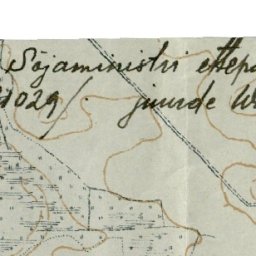 Sõjaministri ettepa
1029/. juurde W